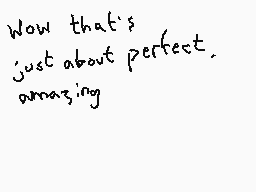 Wow that's
just about perfect.
amazing